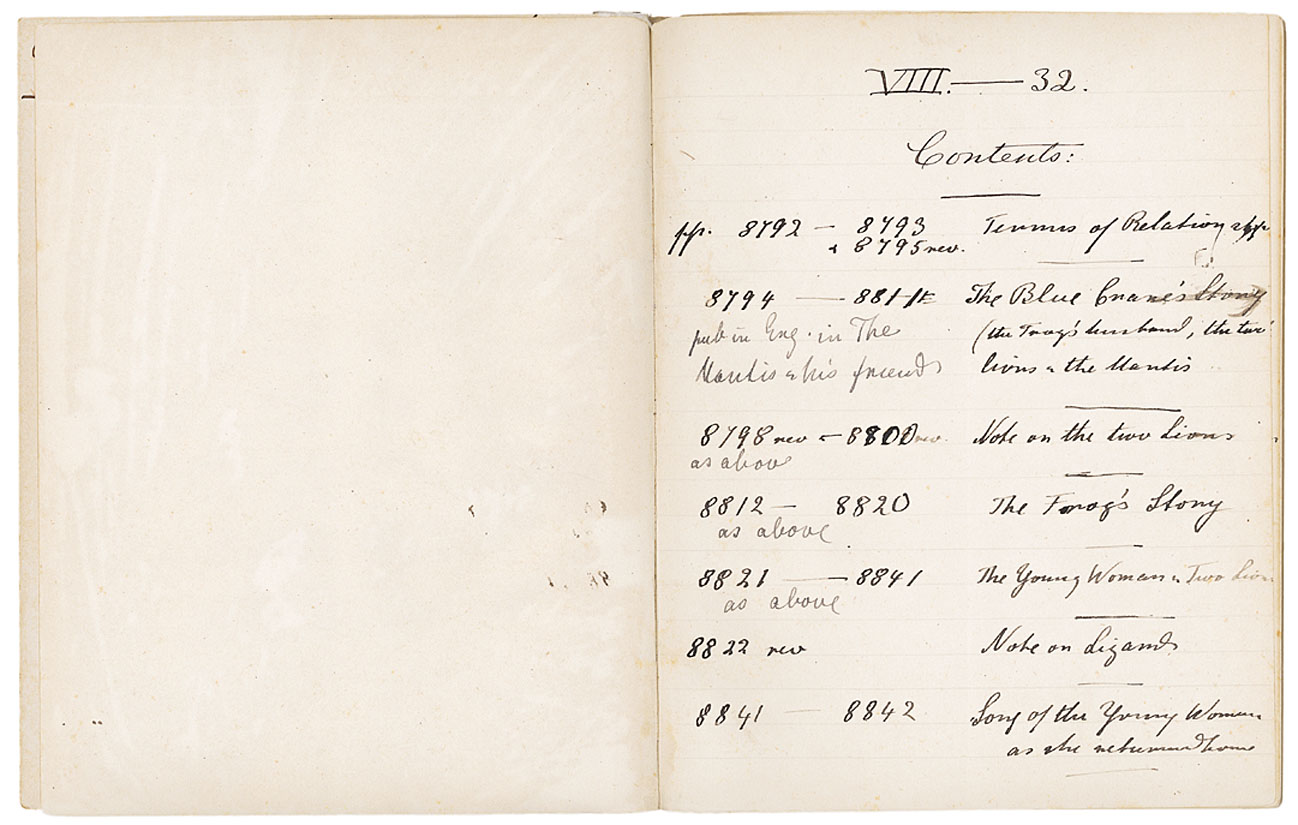 VIII. — 32.
Contents:
pp. 8792 — 8793 Terms of Relationship
& 8795 rev.
8794 — 8811 The Blue Crane's Story
pub in Eng. in The (the Frog's husband, the two
Mantis & his friends lions & the Mantis
8798 rev — 8800 rev. Note on the two Lions
as above
8812 — 8820 The Frog's Story
as above
8821 — 8841 The Young Woman & Two Lions
as above
8822 rev Note on Lizards
8841 — 8842 Song of the Young Woman
as she returned home